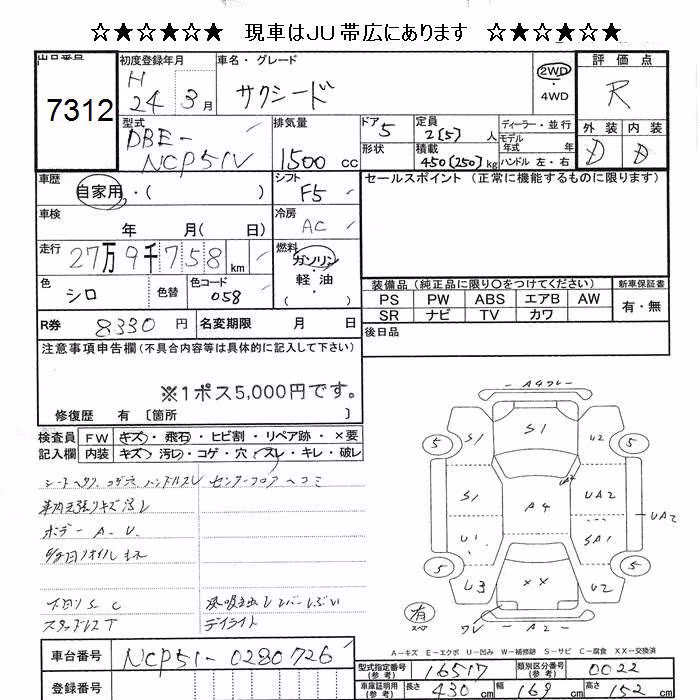 ☆★☆★☆★ 現車はJU帯広にあります ☆★☆★☆★
出品番号 7312
初度登録年月 H 24年 3月
車名・グレード サクシード
2WD ・ 4WD
評価点 R
外装 D 内装 D
型式 DBE-NCP51V
排気量 1500 cc
ドア 5
形状
定員 2[5] 人
積載 450[250] kg
ディーラー・並行
モデル年式 年
ハンドル 左・右
車歴 自家用・( )
シフト F5
セールスポイント (正常に機能するものに限ります)
車検 年 月( 日)
冷房 AC
走行 27万9千758 km
燃料 ガソリン・軽油・( )
色 シロ 色替 色コード 058
装備品 (純正品に限り〇をつけてください) 新車保証書
PS PW ABS エアB AW 有・無
SR ナビ TV カワ
R券 8330 円 名変期限 月 日
後日品
注意事項申告欄 (不具合内容等は具体的に記入して下さい)
※1ポス5,000円です。
修復歴 有 〔箇所 〕
検査員記入欄
FW キズ・飛石・ヒビ割・リペア跡・×要
内装 キズ・汚れ・コゲ・穴・スレ・キレ・破レ
センターフロアヘコミ
ボデー A.U.
下回り S C
スタッドレスT デイライト
A4
S1 S1 U2
5 5
S1 A4 UA2 UA2
U1 SA1
5 5
U3 XX U2
有 スペア
A2
A－キズ E－エクボ U－凹み W－補修跡 S－サビ C－腐食 XX－交換済
車台番号 NCP51-0280726
登録番号
型式指定番号 (参考) 16517 類別区分番号 (参考) 0022
車庫証明用 (参考) 長さ 430 cm 幅 169 cm 高さ 152 cm